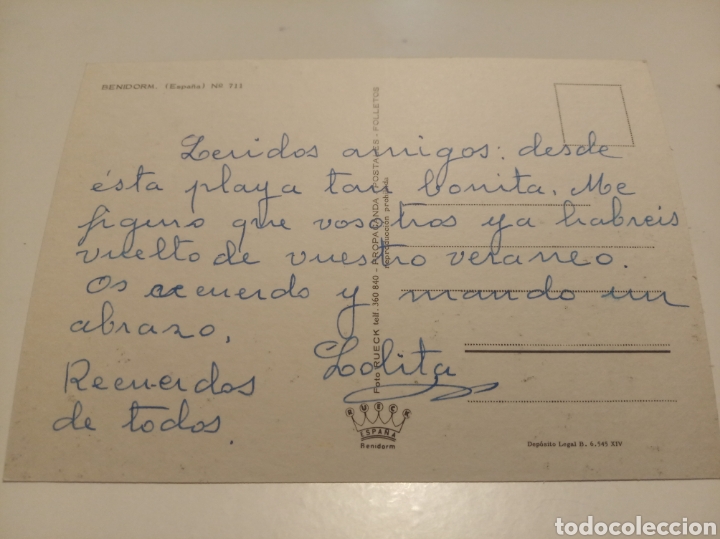 BENIDORM. (España) Nº 711
Queridos amigos: desde
ésta playa tan bonita. Me
figuro que vosotros ya habreis
vuelto de vuestro veraneo.
Os recuerdo y mando un
abrazo,
Lolita
Recuerdos
de todos.
Foto RUECK telf. 360 840 - PROPAGANDA - POSTALES - FOLLETOS
Reproducción prohibida
RUECK
ESPAÑA
Benidorm
Depósito Legal B. 6.545 XIV
todocoleccion